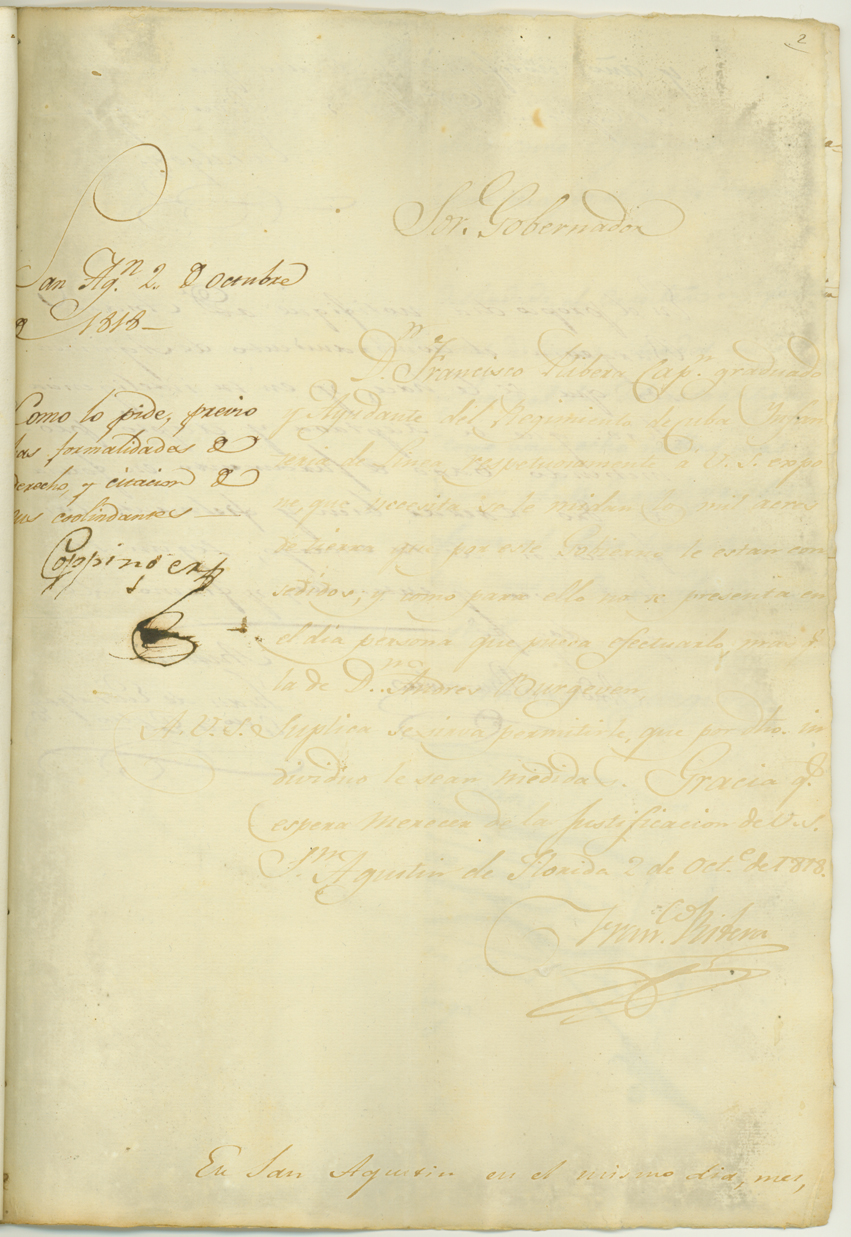 2
Sor. Gobernador
San Agn. 2 d Octubre
d 1818 —
Como lo pide, previo
las formalidades d
derecho, y citacion d
los colindantes —
Coppinger
Dn. Francisco Ribera Capn. graduado
y Ayudante del Regimiento de Cuba Infan
teria de linea respetuosamente á V.S. expo
ne, que necesita se le midan los mil acres
de tierra que por este Gobierno le estan con
sedidos; y como para ello no se presenta en
el dia persona que pueda efectuarlo, mas q.
la de Dn. Andres Burgevin
A. V. S. Suplica se sirva permitirle, que por dho. in
dividuo le sean medidas. Gracia q.
espera merecer de la Justificacion de V.S.
Sn. Agustin de Florida 2 de Octe. de 1818.
Franco. Ribera
En San Agustin en el mismo dia, mes,